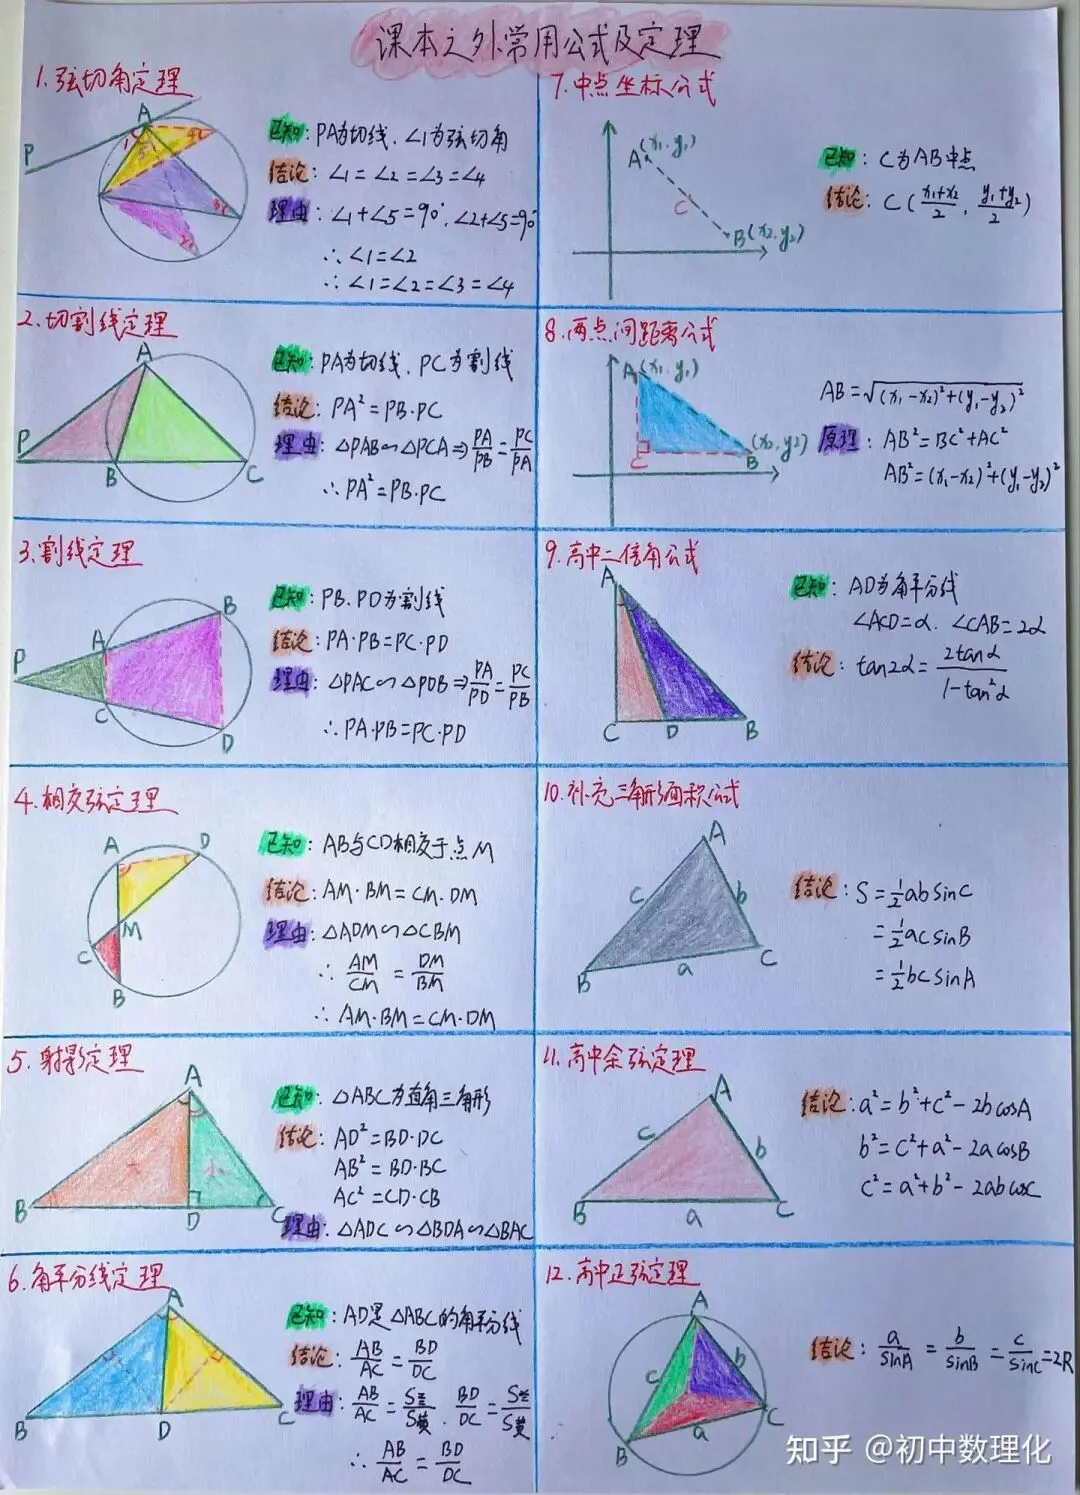 课本之外常用公式及定理
1.弦切角定理
A
P
1
5
4
3
2
已知:PA为切线、∠1为弦切角
结论:∠1=∠2=∠3=∠4
理由:∠1+∠5=90°,∠2+∠5=90°
∴∠1=∠2
∴∠1=∠2=∠3=∠4
2.切割线定理
A
P
B
C
已知:PA为切线、PC为割线
结论:PA²=PB·PC
理由:△PAB∽△PCA⇒PA/PB=PC/PA
∴PA²=PB·PC
3.割线定理
B
A
P
C
D
已知:PB、PD为割线
结论:PA·PB=PC·PD
理由:△PAC∽△PDB⇒PA/PD=PC/PB
∴PA·PB=PC·PD
4.相交弦定理
A
D
M
C
B
已知:AB与CD相交于点M
结论:AM·BM=CM·DM
理由:△ADM∽△CBM
∴AM/CM=DM/BM
∴AM·BM=CM·DM
5.射影定理
A
大
小
B
D
C
已知:△ABC为直角三角形
结论:AD²=BD·DC
AB²=BD·BC
AC²=CD·CB
理由:△ADC∽△BDA∽△BAC
6.角平分线定理
A
B
D
C
已知:AD是△ABC的角平分线
结论:AB/AC=BD/DC
理由:AB/AC=S兰/S黄,BD/DC=S兰/S黄
∴AB/AC=BD/DC
7.中点坐标公式
A(x₁,y₁)
C
B(x₂,y₂)
已知:C为AB中点
结论:C((x₁+x₂)/2,(y₁+y₂)/2)
8.两点间距离公式
A(x₁,y₁)
C
B
(x₂,y₂)
AB=√((x₁-x₂)²+(y₁-y₂)²)
原理:AB²=BC²+AC²
AB²=(x₁-x₂)²+(y₁-y₂)²
9.高中二倍角公式
A
C
D
B
已知:AD为角平分线
∠ACD=α、∠CAB=2α
结论:tan2α=2tanα/(1-tan²α)
10.补充三角形面积公式
A
c
b
B
a
C
结论:S=½absinC
=½acsinB
=½bcsinA
11.高中余弦定理
A
c
b
B
a
C
结论:a²=b²+c²-2bcosA
b²=c²+a²-2acosB
c²=a²+b²-2abcosc
12.高中正弦定理
A
c
b
C
B
a
结论:a/sinA=b/sinB=c/sinC=2R
知乎 @初中数理化